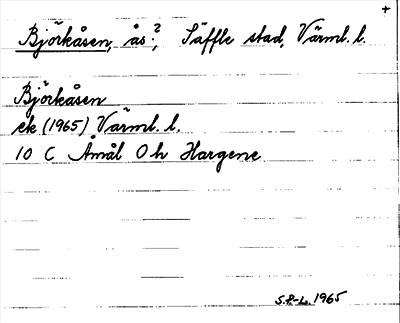 +
Björkåsen, ås?, Säffle stad, Värml. l.
Björkåsen
ek (1965) Värml. l.
10 C Åmål Oh Hargene
S.P-L. 1965